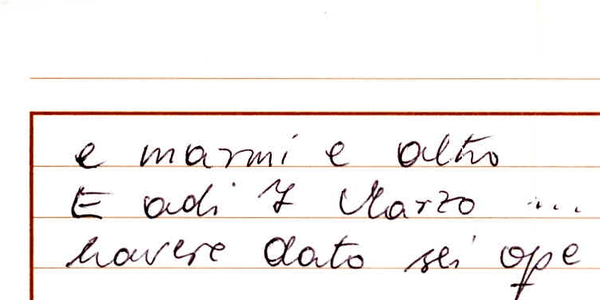 e marmi e altro
E adi 7 Marzo ...
havere dato sei ope